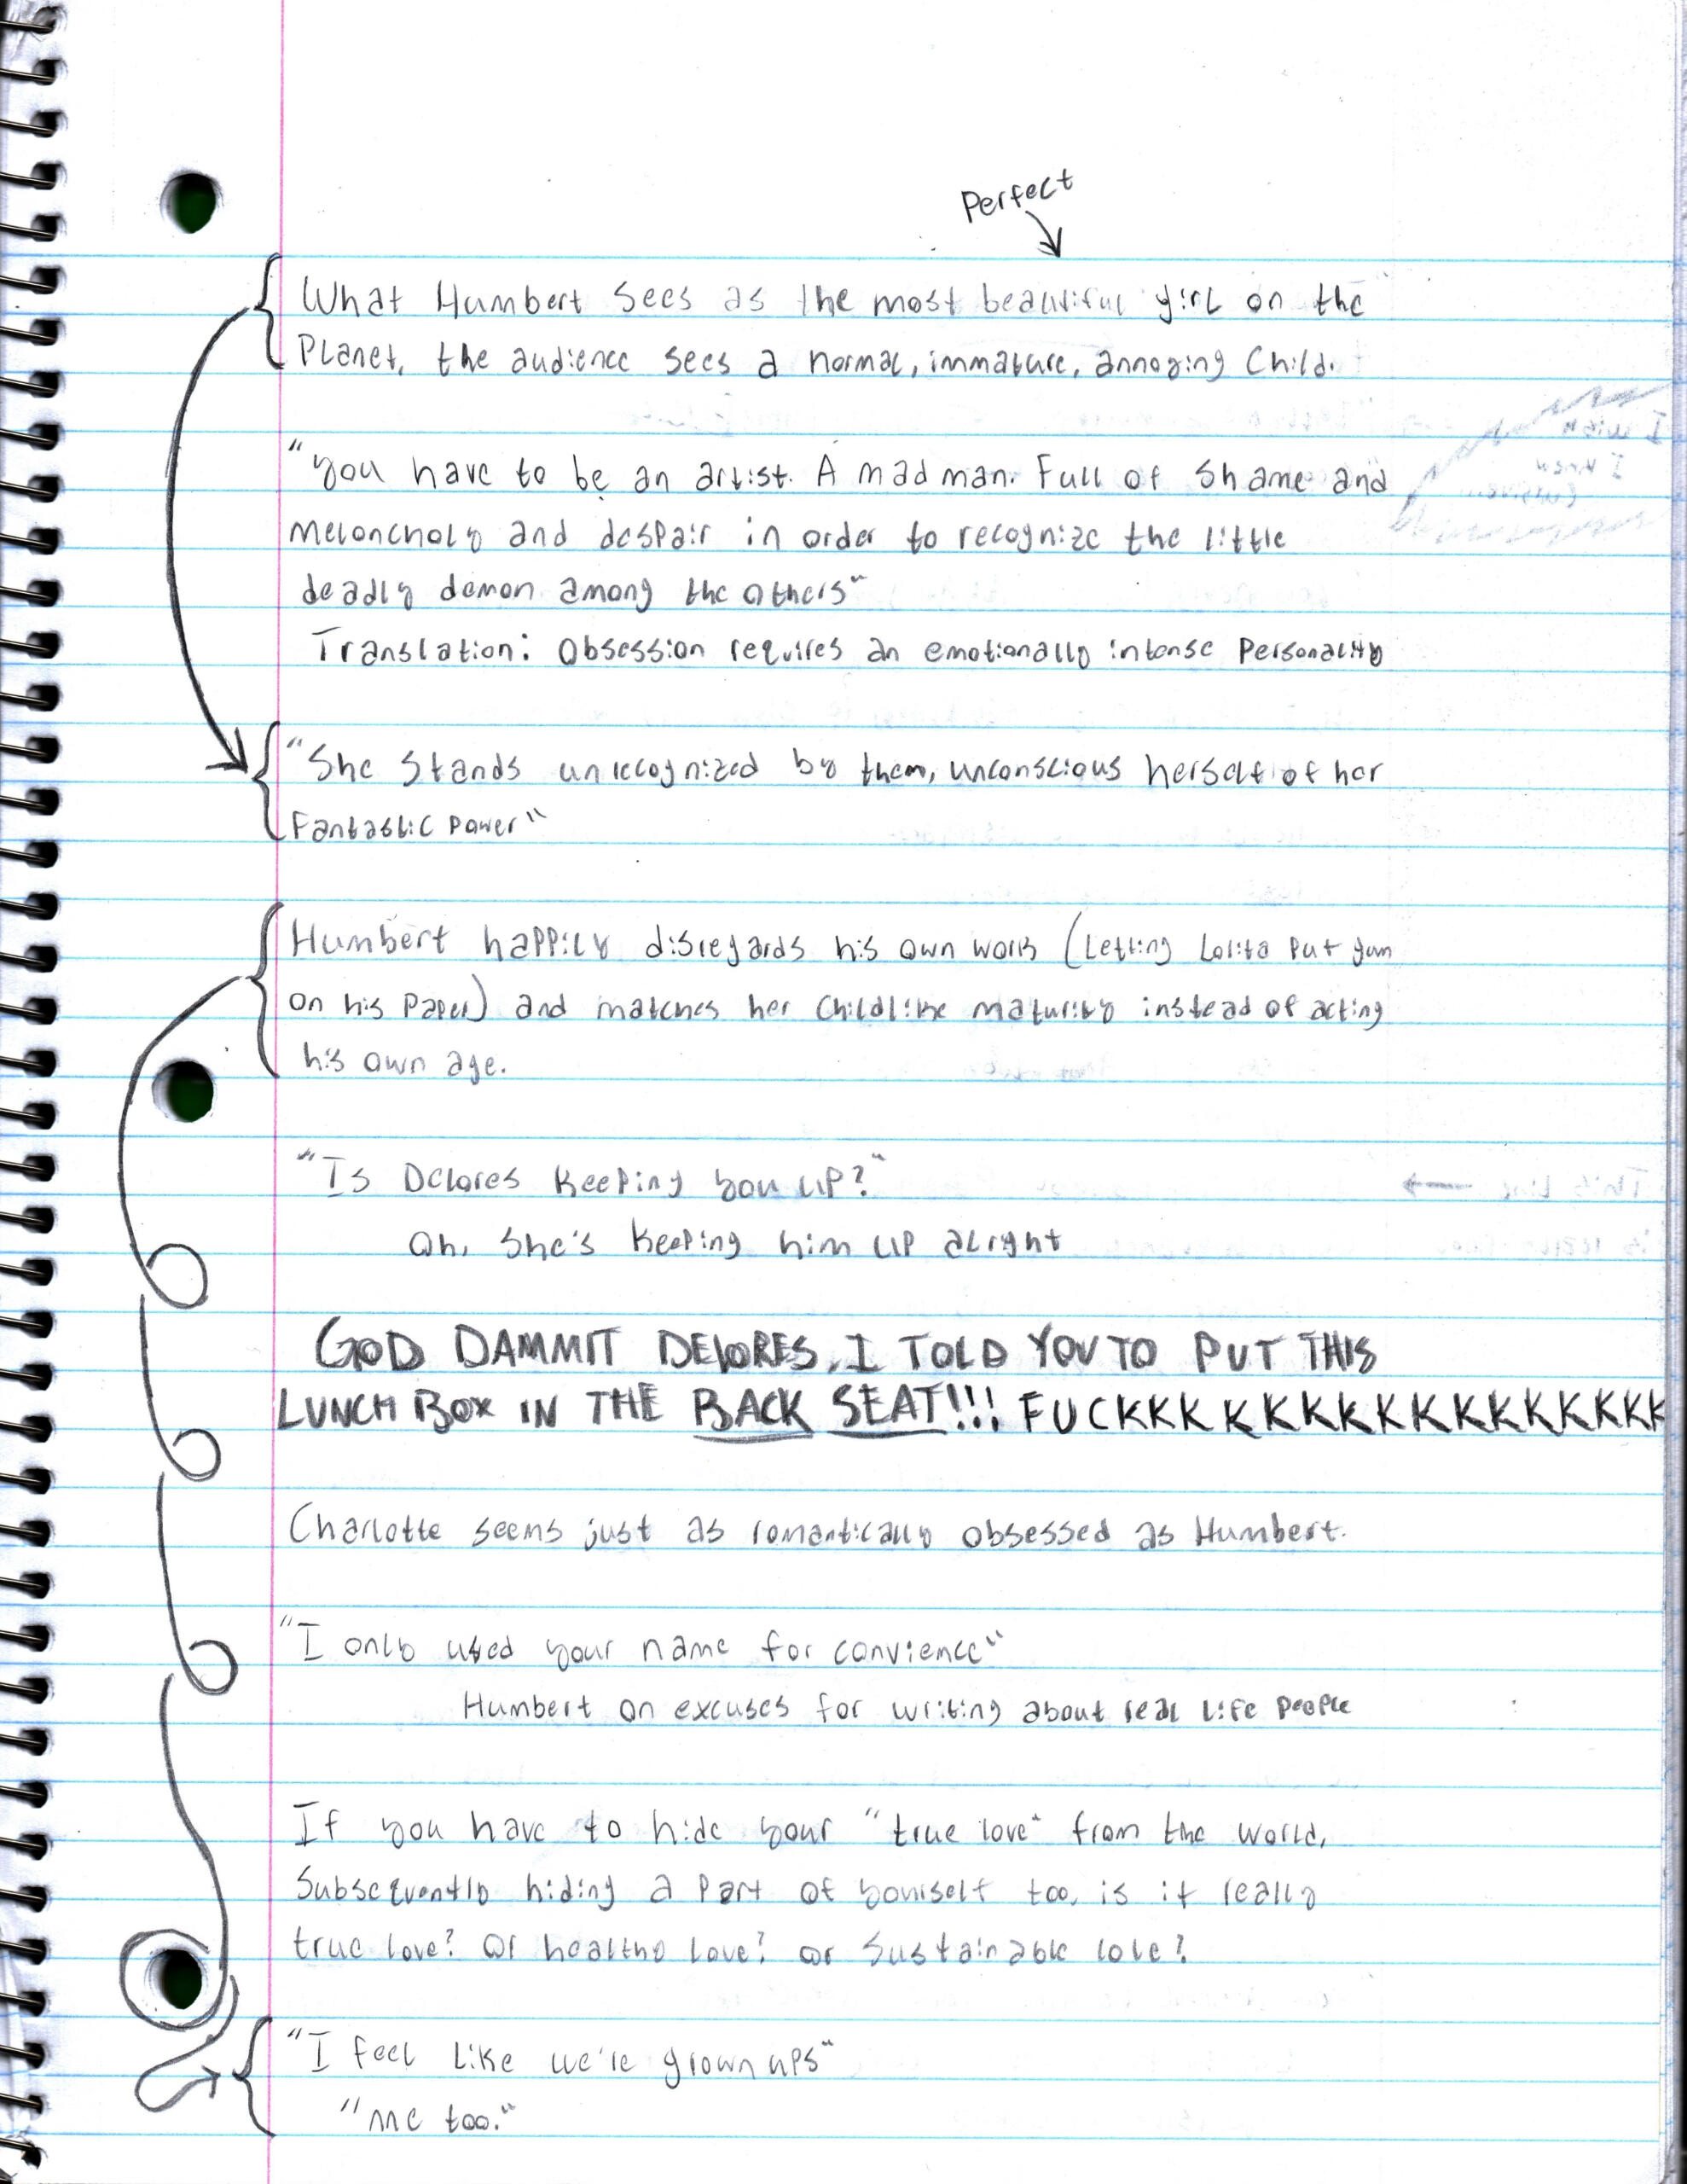 Perfect
What Humbert sees as the most beautiful girl on the
Planet, the audience sees a normal, immature, annoying Child.
"you have to be an artist. A mad man. Full of Shame and
Meloncholy and despair in order to recognize the little
deadly demon among the others"
Translation: Obsession requires an emotionally intense Personality
"She Stands unrecognized by them, unconscious herself of her
Fantastic Power"
Humbert happily disregards his own work (Letting Lolita Put gum
on his Paper) and matches her Childlike maturity instead of acting
his own age.
"Is Delores Keeping you up?"
Oh, She's Keeping him up alright
GOD DAMMIT DELORES, I TOLD YOU TO PUT THIS
LUNCH BOX IN THE BACK SEAT!!! FUCKKKKKKKKKKKKKKKK
Charlotte seems just as romantically obsessed as Humbert.
"I only used your name for convience"
Humbert on excuses for writing about real life People
If you have to hide your "true love" from the world,
Subsequently hiding a Part of yourself too, is it really
true love? Or healthy Love? or Sustainable love?
"I feel Like we're grown ups"
"me too."